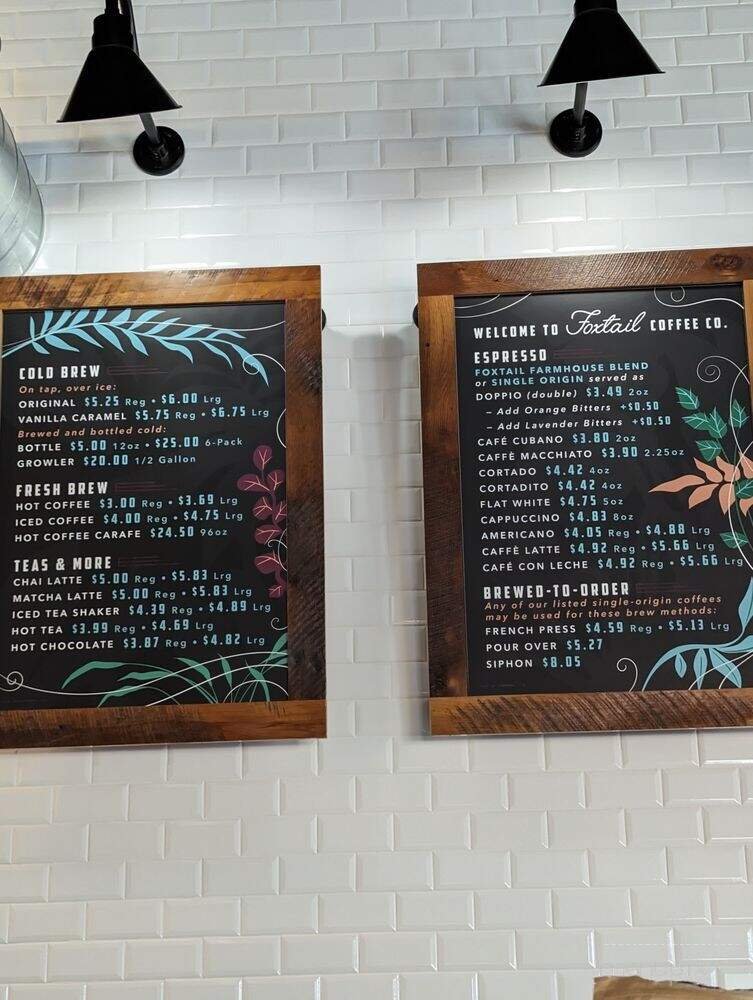 COLD BREW
On tap, over ice:
ORIGINAL $5.25 Reg • $6.00 Lrg
VANILLA CARAMEL $5.75 Reg • $6.75 Lrg
Brewed and bottled cold:
BOTTLE $5.00 12oz • $25.00 6-Pack
GROWLER $20.00 1/2 Gallon
FRESH BREW
HOT COFFEE $3.00 Reg • $3.69 Lrg
ICED COFFEE $4.00 Reg • $4.75 Lrg
HOT COFFEE CARAFE $24.50 96oz
TEAS & MORE
CHAI LATTE $5.00 Reg • $5.83 Lrg
MATCHA LATTE $5.00 Reg • $5.83 Lrg
ICED TEA SHAKER $4.39 Reg • $4.89 Lrg
HOT TEA $3.99 Reg • $4.69 Lrg
HOT CHOCOLATE $3.87 Reg • $4.82 Lrg
WELCOME TO Foxtail COFFEE CO.
ESPRESSO
FOXTAIL FARMHOUSE BLEND
or SINGLE ORIGIN served as
DOPPIO (double) $3.49 2oz
– Add Orange Bitters +$0.50
– Add Lavender Bitters +$0.50
CAFÉ CUBANO $3.80 2oz
CAFFÈ MACCHIATO $3.90 2.25oz
CORTADO $4.42 4oz
CORTADITO $4.42 4oz
FLAT WHITE $4.75 5oz
CAPPUCCINO $4.83 8oz
AMERICANO $4.05 Reg • $4.88 Lrg
CAFFÈ LATTE $4.92 Reg • $5.66 Lrg
CAFÉ CON LECHE $4.92 Reg • $5.66 Lrg
BREWED-TO-ORDER
Any of our listed single-origin coffees
may be used for these brew methods:
FRENCH PRESS $4.59 Reg • $5.13 Lrg
POUR OVER $5.27
SIPHON $8.05